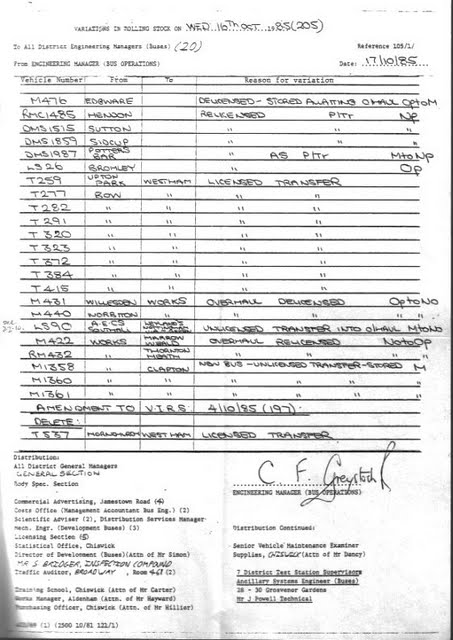 VARIATIONS IN ROLLING STOCK on WED 16TH OCT 1985 (205)
To All District Engineering Managers (Buses) (20)
Reference 105/1/
From ENGINEERING MANAGER (BUS OPERATIONS)
Date: 17/10/85
Vehicle Number From To Reason for variation
M476 EDGWARE DELICENSED - STORED AWAITING O/HAUL Op to M
RMC1485 HENDON RELICENSED P/Tr Np
DMS1515 SUTTON " " "
DMS1859 SIDCUP " " "
DMS1987 POTTERS BAR " AS P/Tr M to Np
LS26 BROMLEY " Op
T259 UPTON PARK WESTHAM LICENSED TRANSFER
T277 BOW " " "
T282 " " " "
T291 " " " "
T320 " " " "
T323 " " " "
T372 " " " "
T384 " " " "
T415 " " " "
M431 WILLESDEN WORKS OVERHAUL DELICENSED Op to No
M440 NORBITON " " " "
LS90 A.E.C S SOUTHALL UNLICENSED TRANSFER INTO O/HAUL M to No
M422 WORKS HARROW WEALD OVERHAUL RELICENSED No to Op
RM432 " THORNTON HEATH " " "
M1358 CLAPTON NEW BUS - UNLICENSED TRANSFER - STORED M
M1360 " " " "
M1361 " " " "
AMENDMENT TO V.I.R.S. 4/10/85 (197).
DELETE:
T537 HORNCHURCH WEST HAM LICENSED TRANSFER
Distribution:
All District General Managers
GENERAL SECTION
Body Spec. Section
C F Greystock
ENGINEERING MANAGER (BUS OPERATIONS)
Commercial Advertising, Jamestown Road
Costs Office (Management Accountant Bus Eng.) (2)
Scientific Adviser (2), Distribution Services Manager
Mech. Engr. (Development Buses) (3)
Licensing Section
Statistical Office, Chiswick
Director of Development (Buses)(Attn of Mr Simon)
Mr S. BRIDGER, INSPECTION COMPOUND
Traffic Auditor, BROADWAY, ROOM 461 (2)
Training School, Chiswick (Attn of Mr Carter)
Works Manager, Aldenham (Attn of Mr Hayward)
Purchasing Officer, Chiswick (Attn of Mr Hillier)
Distribution Continued:
Senior Vehicle Maintenance Examiner
Supplies, CHISWICK (Attn of Mr Dancy)
7 District Test Station Supervisors
Ancillary Systems Engineer (Buses)
28 - 30 Grosvenor Gardens
Mr J Powell Technical
(1) (2500 10/81 121/1)